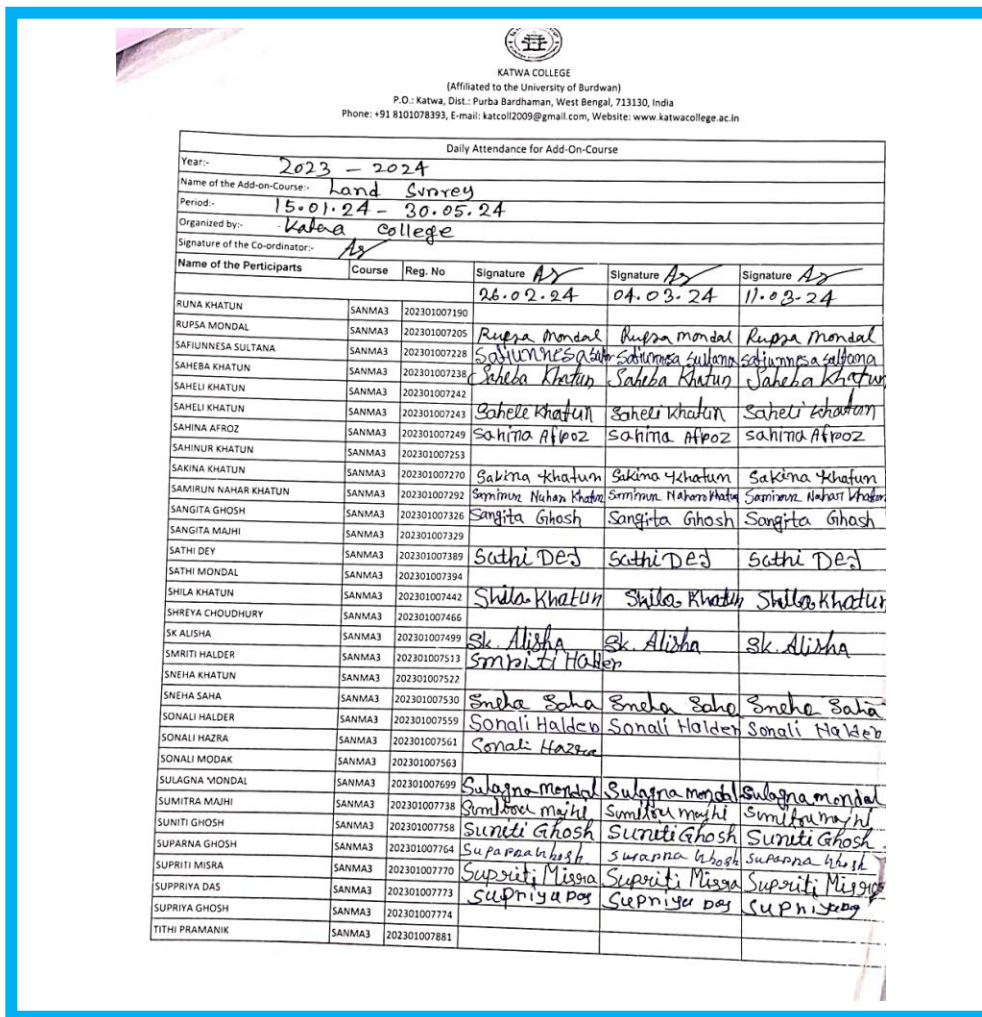 KATWA COLLEGE
(Affiliated to the University of Burdwan)
P.O.: Katwa, Dist.: Purba Bardhaman, West Bengal, 713130, India
Phone: +91 8101078393, E-mail: katcoll2009@gmail.com, Website: www.katwacollege.ac.in
Daily Attendance for Add-On-Course
Year:- 2023 - 2024
Name of the Add-on-Course:- Land Survey
Period:- 15.01.24 - 30.05.24
Organized by:- Katwa College
Signature of the Co-ordinator:-
Name of the Perticiparts Course Reg. No Signature Signature Signature
26.02.24 04.03.24 11.03.24
RUNA KHATUN SANMA3 202301007190
RUPSA MONDAL SANMA3 202301007205 Rupsa Mondal Rupsa mondal Rupsa Mondal
SAFIUNNESA SULTANA SANMA3 202301007228 Safiunnesa Safiunnesa Sultana safiunnesa sultana
SAHEBA KHATUN SANMA3 202301007238 Saheba Khatun Saheba Khatun Saheba Khatun
SAHELI KHATUN SANMA3 202301007242
SAHELI KHATUN SANMA3 202301007243 Sahele Khatun Saheli Khatun Saheli Khatun
SAHINA AFROZ SANMA3 202301007249 Sahina Afroz Sahina Afroz sahina Afroz
SAHINUR KHATUN SANMA3 202301007253
SAKINA KHATUN SANMA3 202301007270 Sakina Khatun Sakina Khatun Sakina Khatun
SAMIRUN NAHAR KHATUN SANMA3 202301007292 Samirun Nahar Khatun Samirun Nahar Khatun Samirun Nahar Khatun
SANGITA GHOSH SANMA3 202301007326 Sangita Ghosh Sangita Ghosh Sangita Ghosh
SANGITA MAJHI SANMA3 202301007329
SATHI DEY SANMA3 202301007389 Sathi Dey Sathi Dey Sathi Dey
SATHI MONDAL SANMA3 202301007394
SHILA KHATUN SANMA3 202301007442 Shila Khatun Shila Khatun Shila Khatun
SHREYA CHOUDHURY SANMA3 202301007466
SK ALISHA SANMA3 202301007499 Sk. Alisha Sk. Alisha Sk. Alisha
SMRITI HALDER SANMA3 202301007513 Smriti Halder
SNEHA KHATUN SANMA3 202301007522
SNEHA SAHA SANMA3 202301007530 Sneha Saha Sneha Saha Sneha Saha
SONALI HALDER SANMA3 202301007559 Sonali Halder Sonali Halder Sonali Halder
SONALI HAZRA SANMA3 202301007561 Sonali Hazra
SONALI MODAK SANMA3 202301007563
SULAGNA MONDAL SANMA3 202301007699 Sulagna Mondal Sulagna mondal Sulagna mondal
SUMITRA MAJHI SANMA3 202301007738 Sumitra majhi Sumitra majhi Sumitra majhi
SUNITI GHOSH SANMA3 202301007758 Suniti Ghosh Suniti Ghosh Suniti Ghosh
SUPARNA GHOSH SANMA3 202301007764 Suparna Ghosh Suparna Ghosh Suparna Ghosh
SUPRITI MISRA SANMA3 202301007770 Supriti Misra Supriti Misra Supriti Misra
SUPPRIYA DAS SANMA3 202301007773 Supriya Das Supriya Das Supriya Das
SUPRIYA GHOSH SANMA3 202301007774
TITHI PRAMANIK SANMA3 202301007881